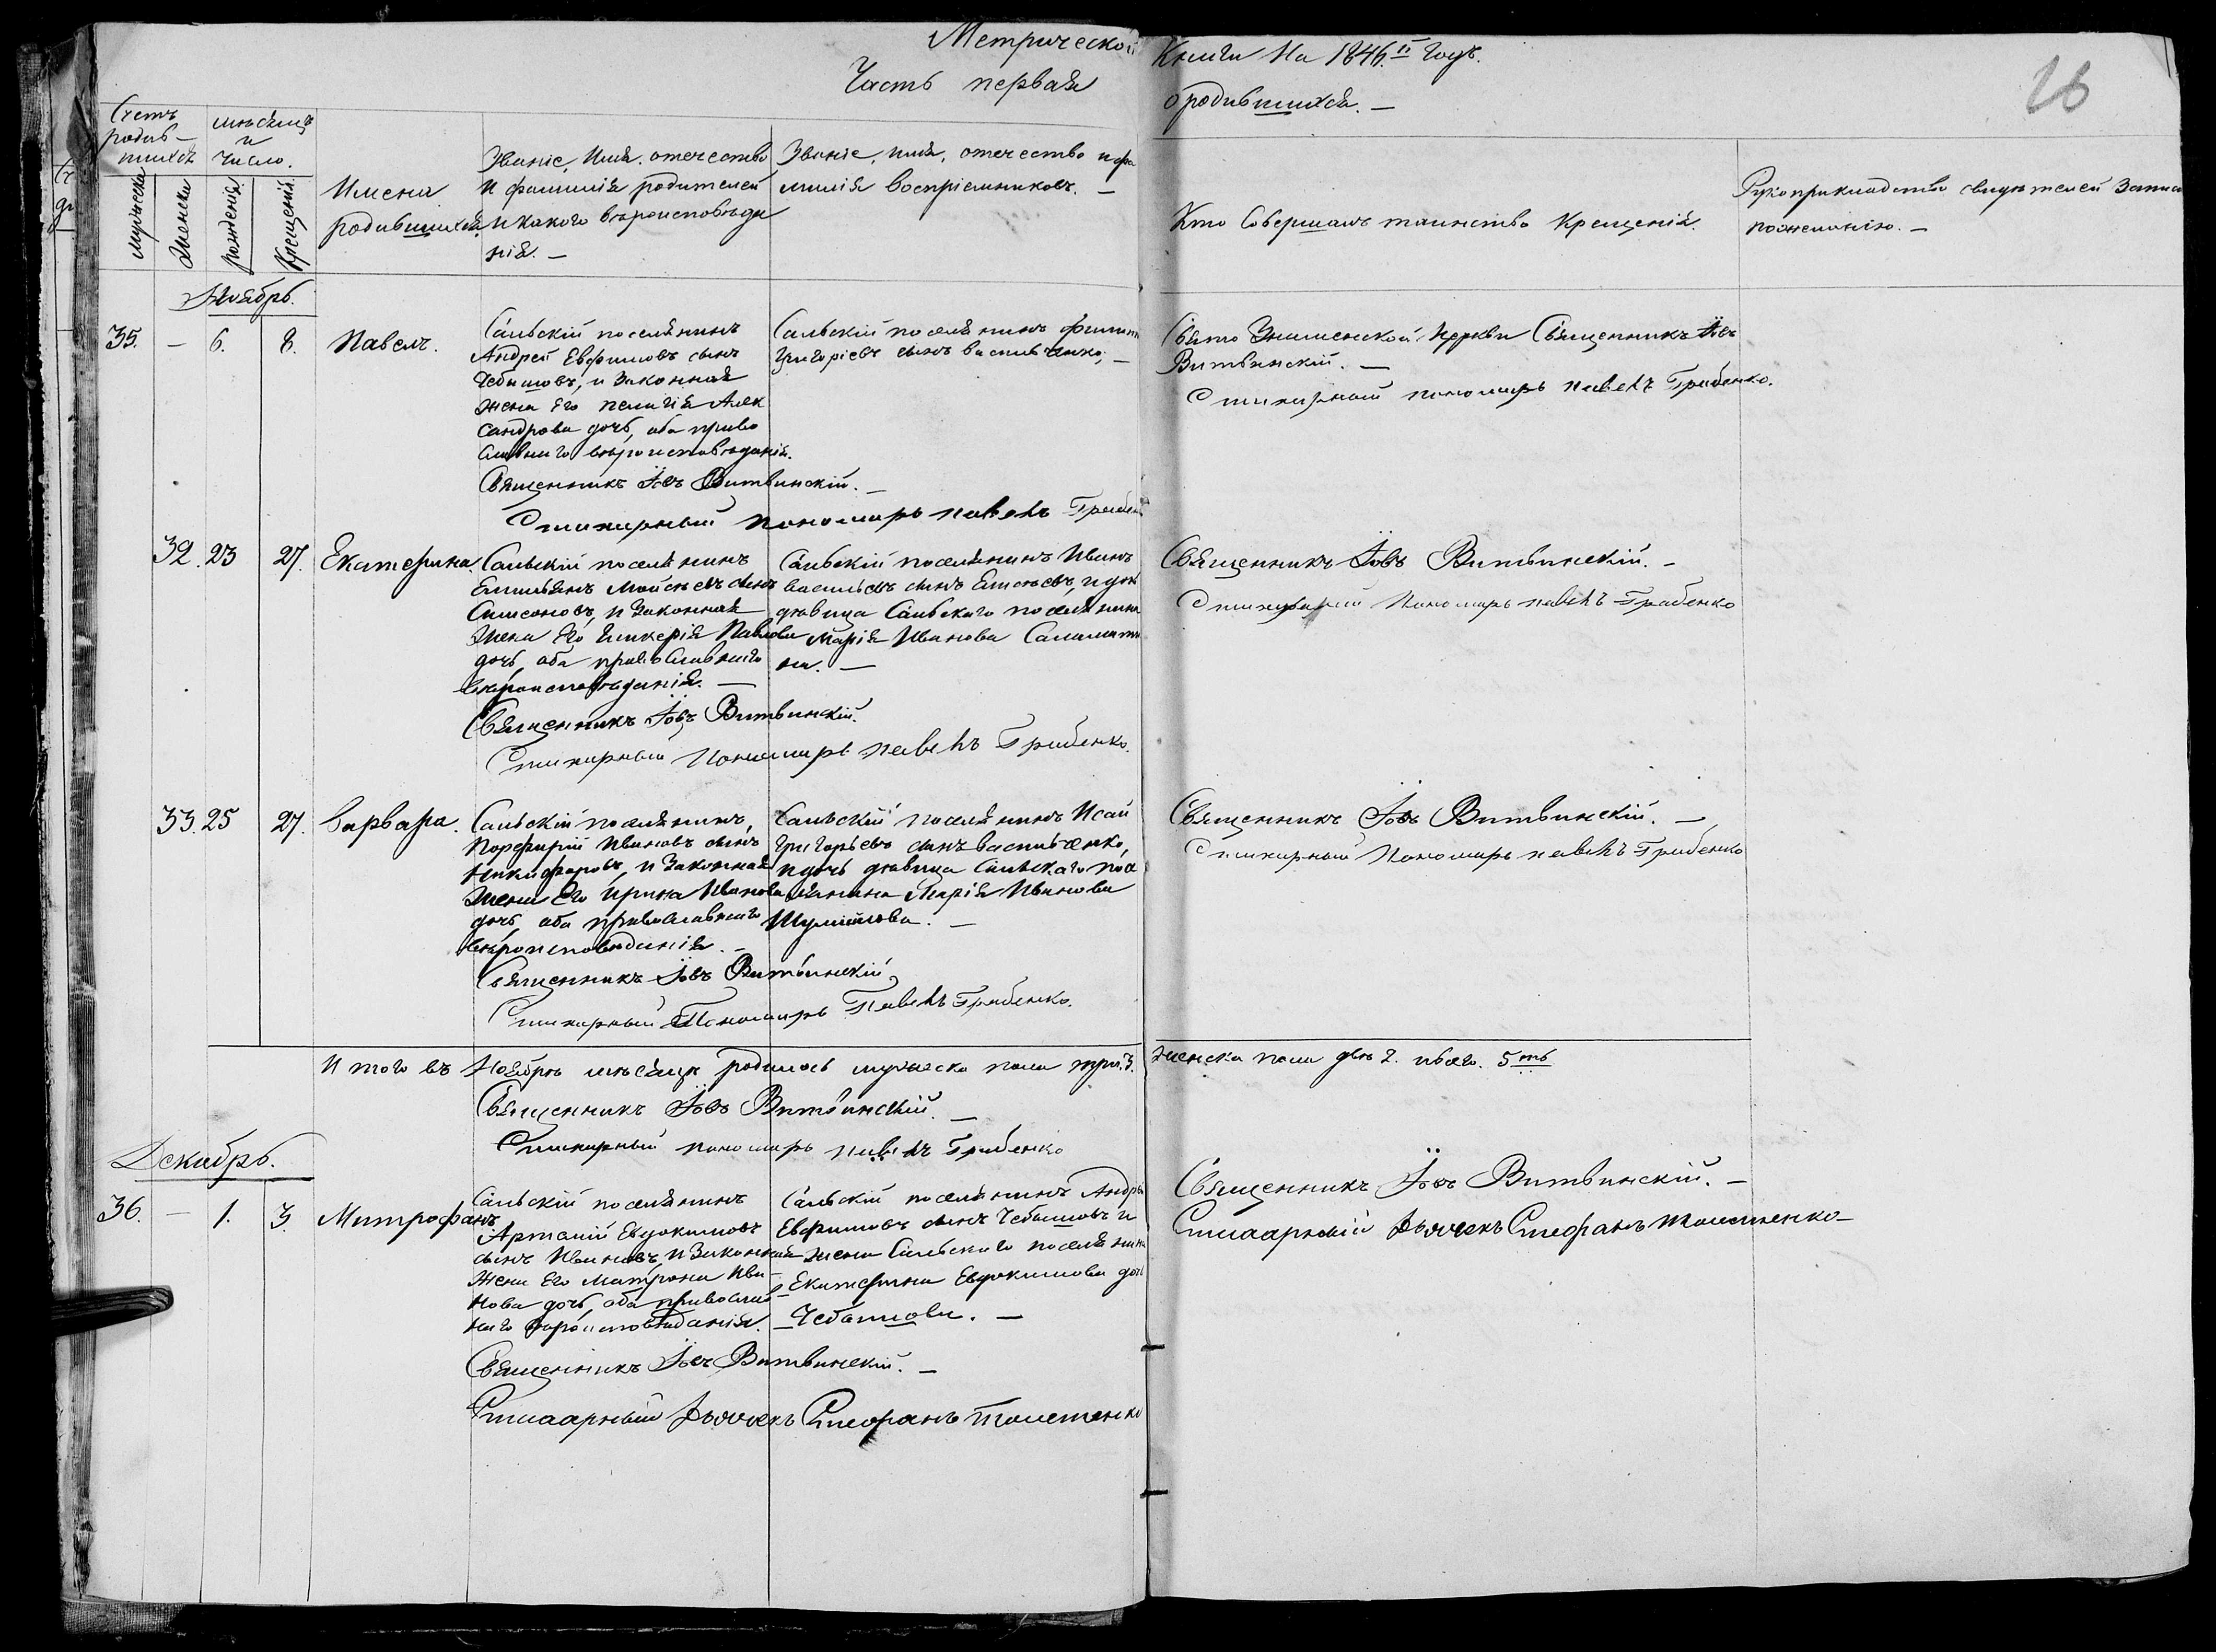 Метрической Книги На 1846.й годъ.
Часть первая о родившихся. —
16
Счетъ родив-шихся
мѣсяцъ и Число.
мужеска
женска
рожденія
Крещенія
Имена родившихся
Званіе, Имя, отечество
и фамилія родителей
и какого вѣроисповѣда
нія. —
Званіе, имя, отечество и фа
милія воспріемниковъ. —
Кто Совершалъ таинство Крещенія.
Рукоприкладство свидѣтелей записи
по желанію. —
Ноябрь.
35. — 6. 8. Павелъ.
Сальскій поселянинъ
Андрей Евфимовъ сынъ
Чебышовъ, и Законная
жена Его Пелагія Алек
сандрова дочь, оба право
славнаго вѣроисповѣданія.
Священникъ Іовъ Витвинскій. —
Пономарь Павелъ Грабенко
Сальскій поселянинъ
Григоріевъ сынъ Васильченко, —
Свято церкви Священникъ Іовъ
Витвинскій. —
пономарь Павелъ Грабенко.
32. 23 27. Екатерина.
Сальскій поселянинъ
Емильянъ Мойсѣевъ сынъ
Симоновъ, и Законная
жена Его Гликерія Павлова
дочь, оба православнаго
вѣроисповѣданія. —
Священникъ Іовъ Витвинскій.
Пономарь Павелъ Грабенко.
Сальскій поселянинъ Иванъ
Васильевъ сынъ и дочь
дѣвица Сальскаго поселянина
Марія Иванова
на. —
Священникъ Іовъ Витвинскій. —
Пономарь Павелъ Грабенко
33. 25 27. Варвара.
Сальскій поселянинъ,
Порфирій Ивановъ сынъ
Никифоровъ, и Законная
жена Его Ирина Иванова
дочь, оба православнаго
вѣроисповѣданія. —
Священникъ Іовъ Витвинскій
Пономарь Павелъ Грабенко.
Сальскій поселянинъ Исай
Григорьевъ сынъ Васильченко,
и дочь дѣвица Сальскаго посе
лянина Марія Иванова
Шумилова. —
Священникъ Іовъ Витвинскій. —
Пономарь Павелъ Грабенко
И того въ Ноябрѣ мѣсяцѣ родилось мужеска пола три. 3. женска пола двѣ 2. и обоего. 5ть
Священникъ Іовъ Витвинскій. —
пономарь Павелъ Грабенко
Декабрь.
36. — 1. 3. Митрофанъ
Сальскій поселянинъ
Артамій Евдокимовъ
сынъ Ивановъ, и Законная
жена Его Матрона Ива-
нова дочь, оба православ
наго вѣроисповѣданія.
Священникъ Іовъ Витвинскій. —
Дьячекъ Стефанъ
Сальскій поселянинъ Андрей
Евфимовъ сынъ Чебышовъ и
жена Сальскаго поселянина
Екатерина Евдокимова дочь
Чебышова. —
Священникъ Іовъ Витвинскій. —
Дьячекъ Стефанъ